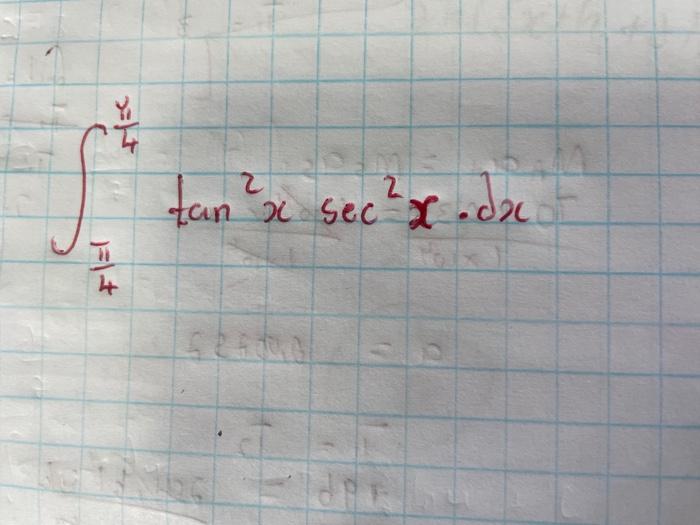 ∫_{π/4}^{π/4} tan²x sec²x .dx